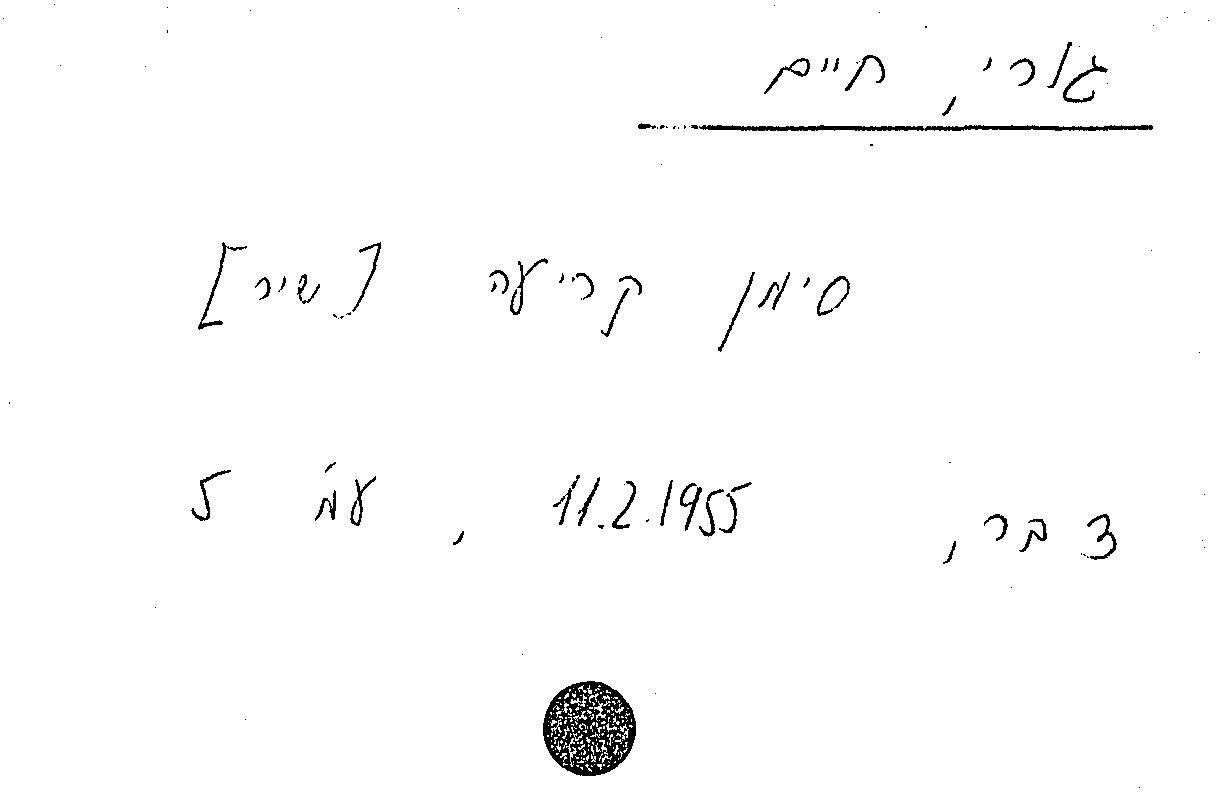 גורי, חיים
סימן קריעה [שיר]
דבר, 11.2.1955, עמ' 5